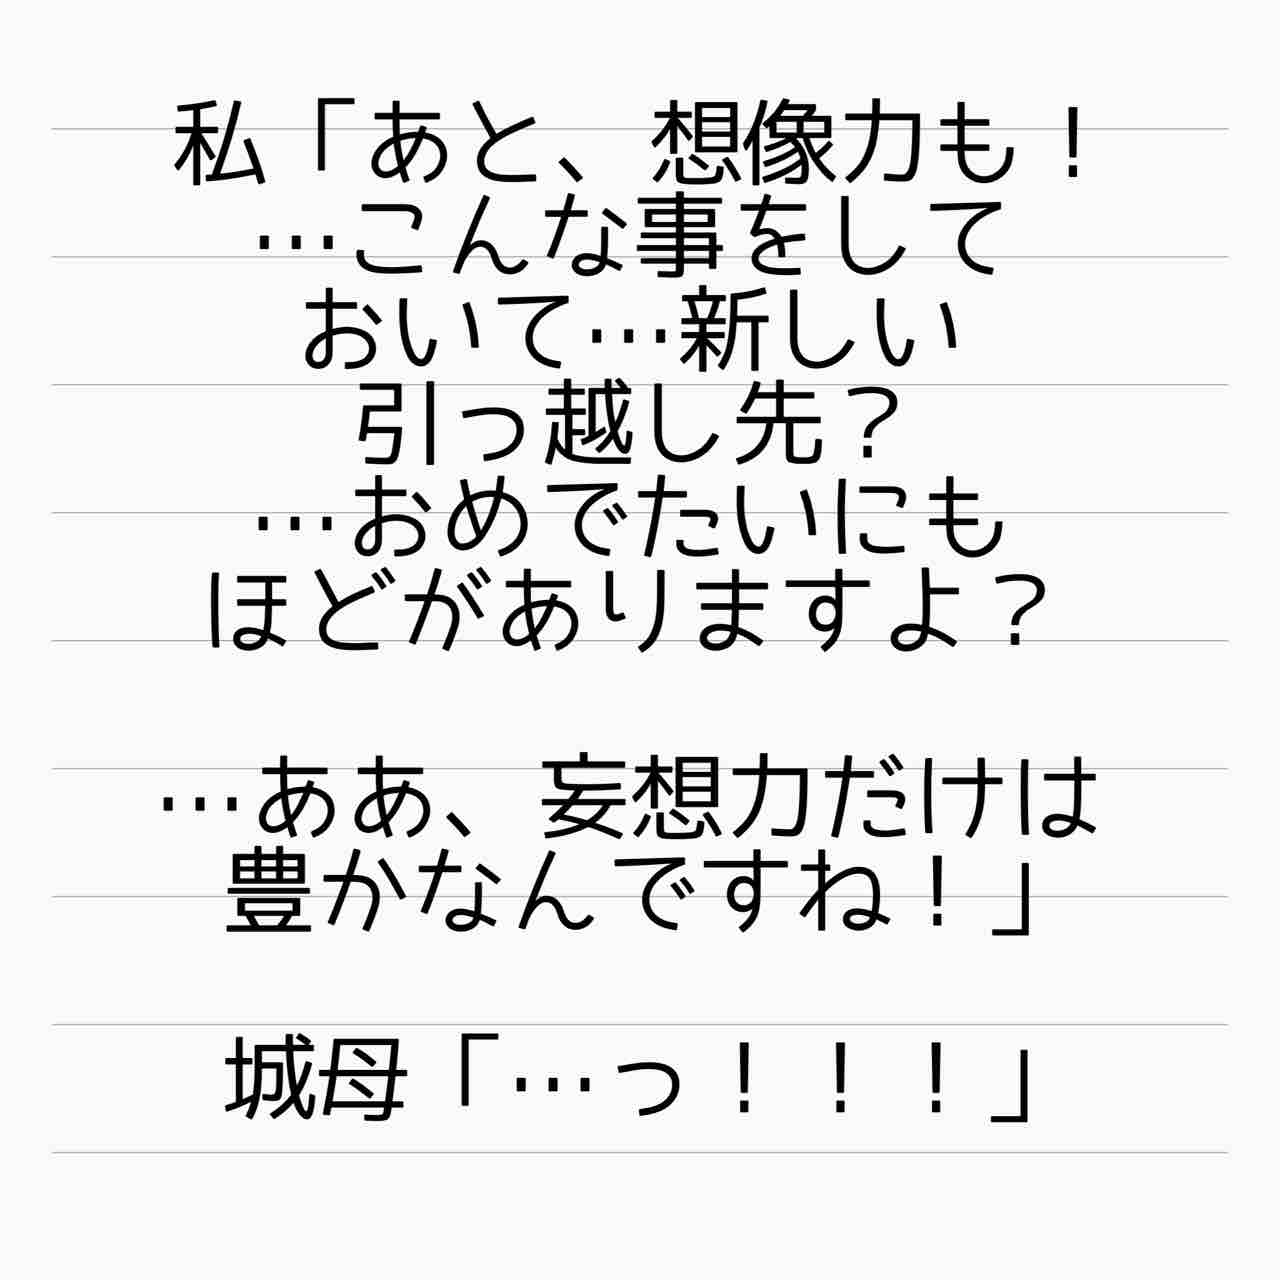 私「あと、想像力も！
…こんな事をして
おいて…新しい
引っ越し先？
…おめでたいにも
ほどがありますよ？
…ああ、妄想力だけは
豊かなんですね！」
城母「…っ！！！」